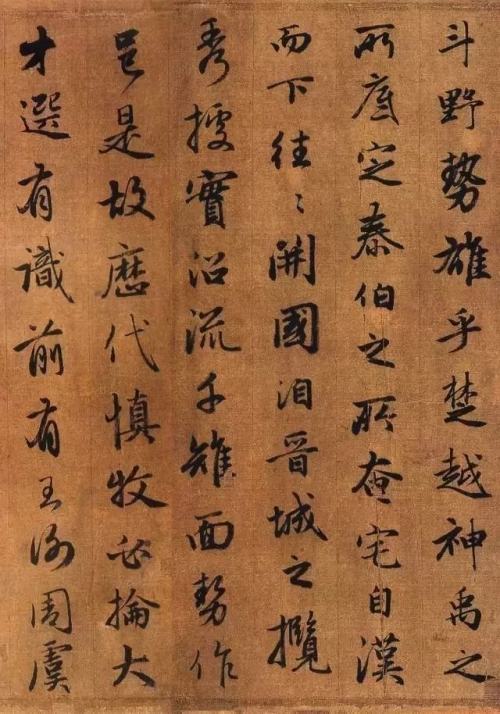 斗野勢雄乎楚越神禹之
所底定泰伯之所奄宅自漢
而下往〻開國洎晉城之攬
秀據實沿流千雉面勢作
邑是故歷代慎牧必掄大
才選有識前有王謝周虞